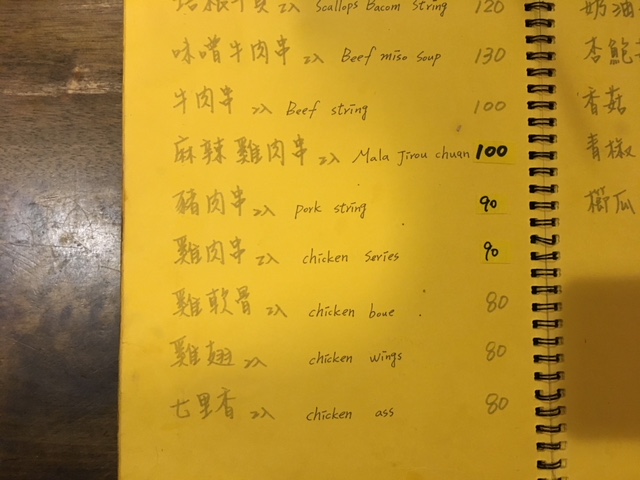 培根干貝 2入 Scallops Bacom String 120
味噌牛肉串 2入 Beef miso soup 130
牛肉串 2入 Beef string 100
麻辣雞肉串 2入 Mala Jirou chuan 100
豬肉串 2入 pork string 90
雞肉串 2入 chicken Series 90
雞軟骨 2入 chicken boue 80
雞翅 2入 chicken wings 80
七里香 2入 chicken ass 80
奶油
杏鮑
香菇
青椒
櫛瓜